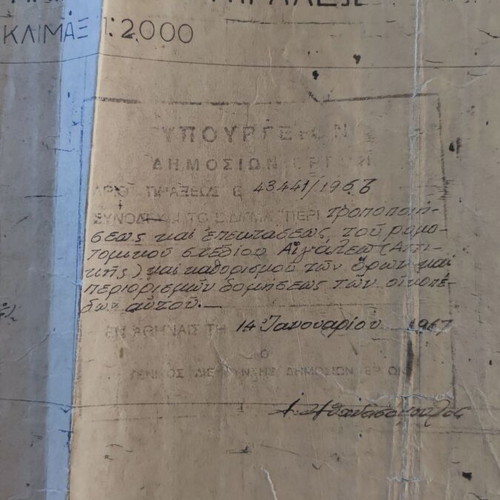 ΚΛΙΜΑΞ 1:2000
ΥΠΟΥΡΓΕΙΟΝ
ΔΗΜΟΣΙΩΝ ΕΡΓΩΝ
ΑΡΙΘ. ΠΡΑΞΕΩΣ Ε 43441/1966
ΣΥΝΟΔΕΥΕΙ ΤΟ Β. Δ/ΓΜΑ "ΠΕΡΙ τροποποιή-
σεως καί ἐπεκτάσεως τοῦ ρυμο-
τομικοῦ σχεδίου Αἰγάλεω (Ἀττι-
κῆς) καί καθορισμοῦ τῶν ὅρων καί
περιορισμῶν δομήσεως τῶν οἰκοπέ-
δων αὐτοῦ.—
ΕΝ ΑΘΗΝΑΙΣ ΤΗ 14 Ἰανουαρίου 1967
Ο
ΓΕΝΙΚΟΣ ΔΙΕΥΘΥΝΤΗΣ ΔΗΜΟΣΙΩΝ ΕΡΓΩΝ